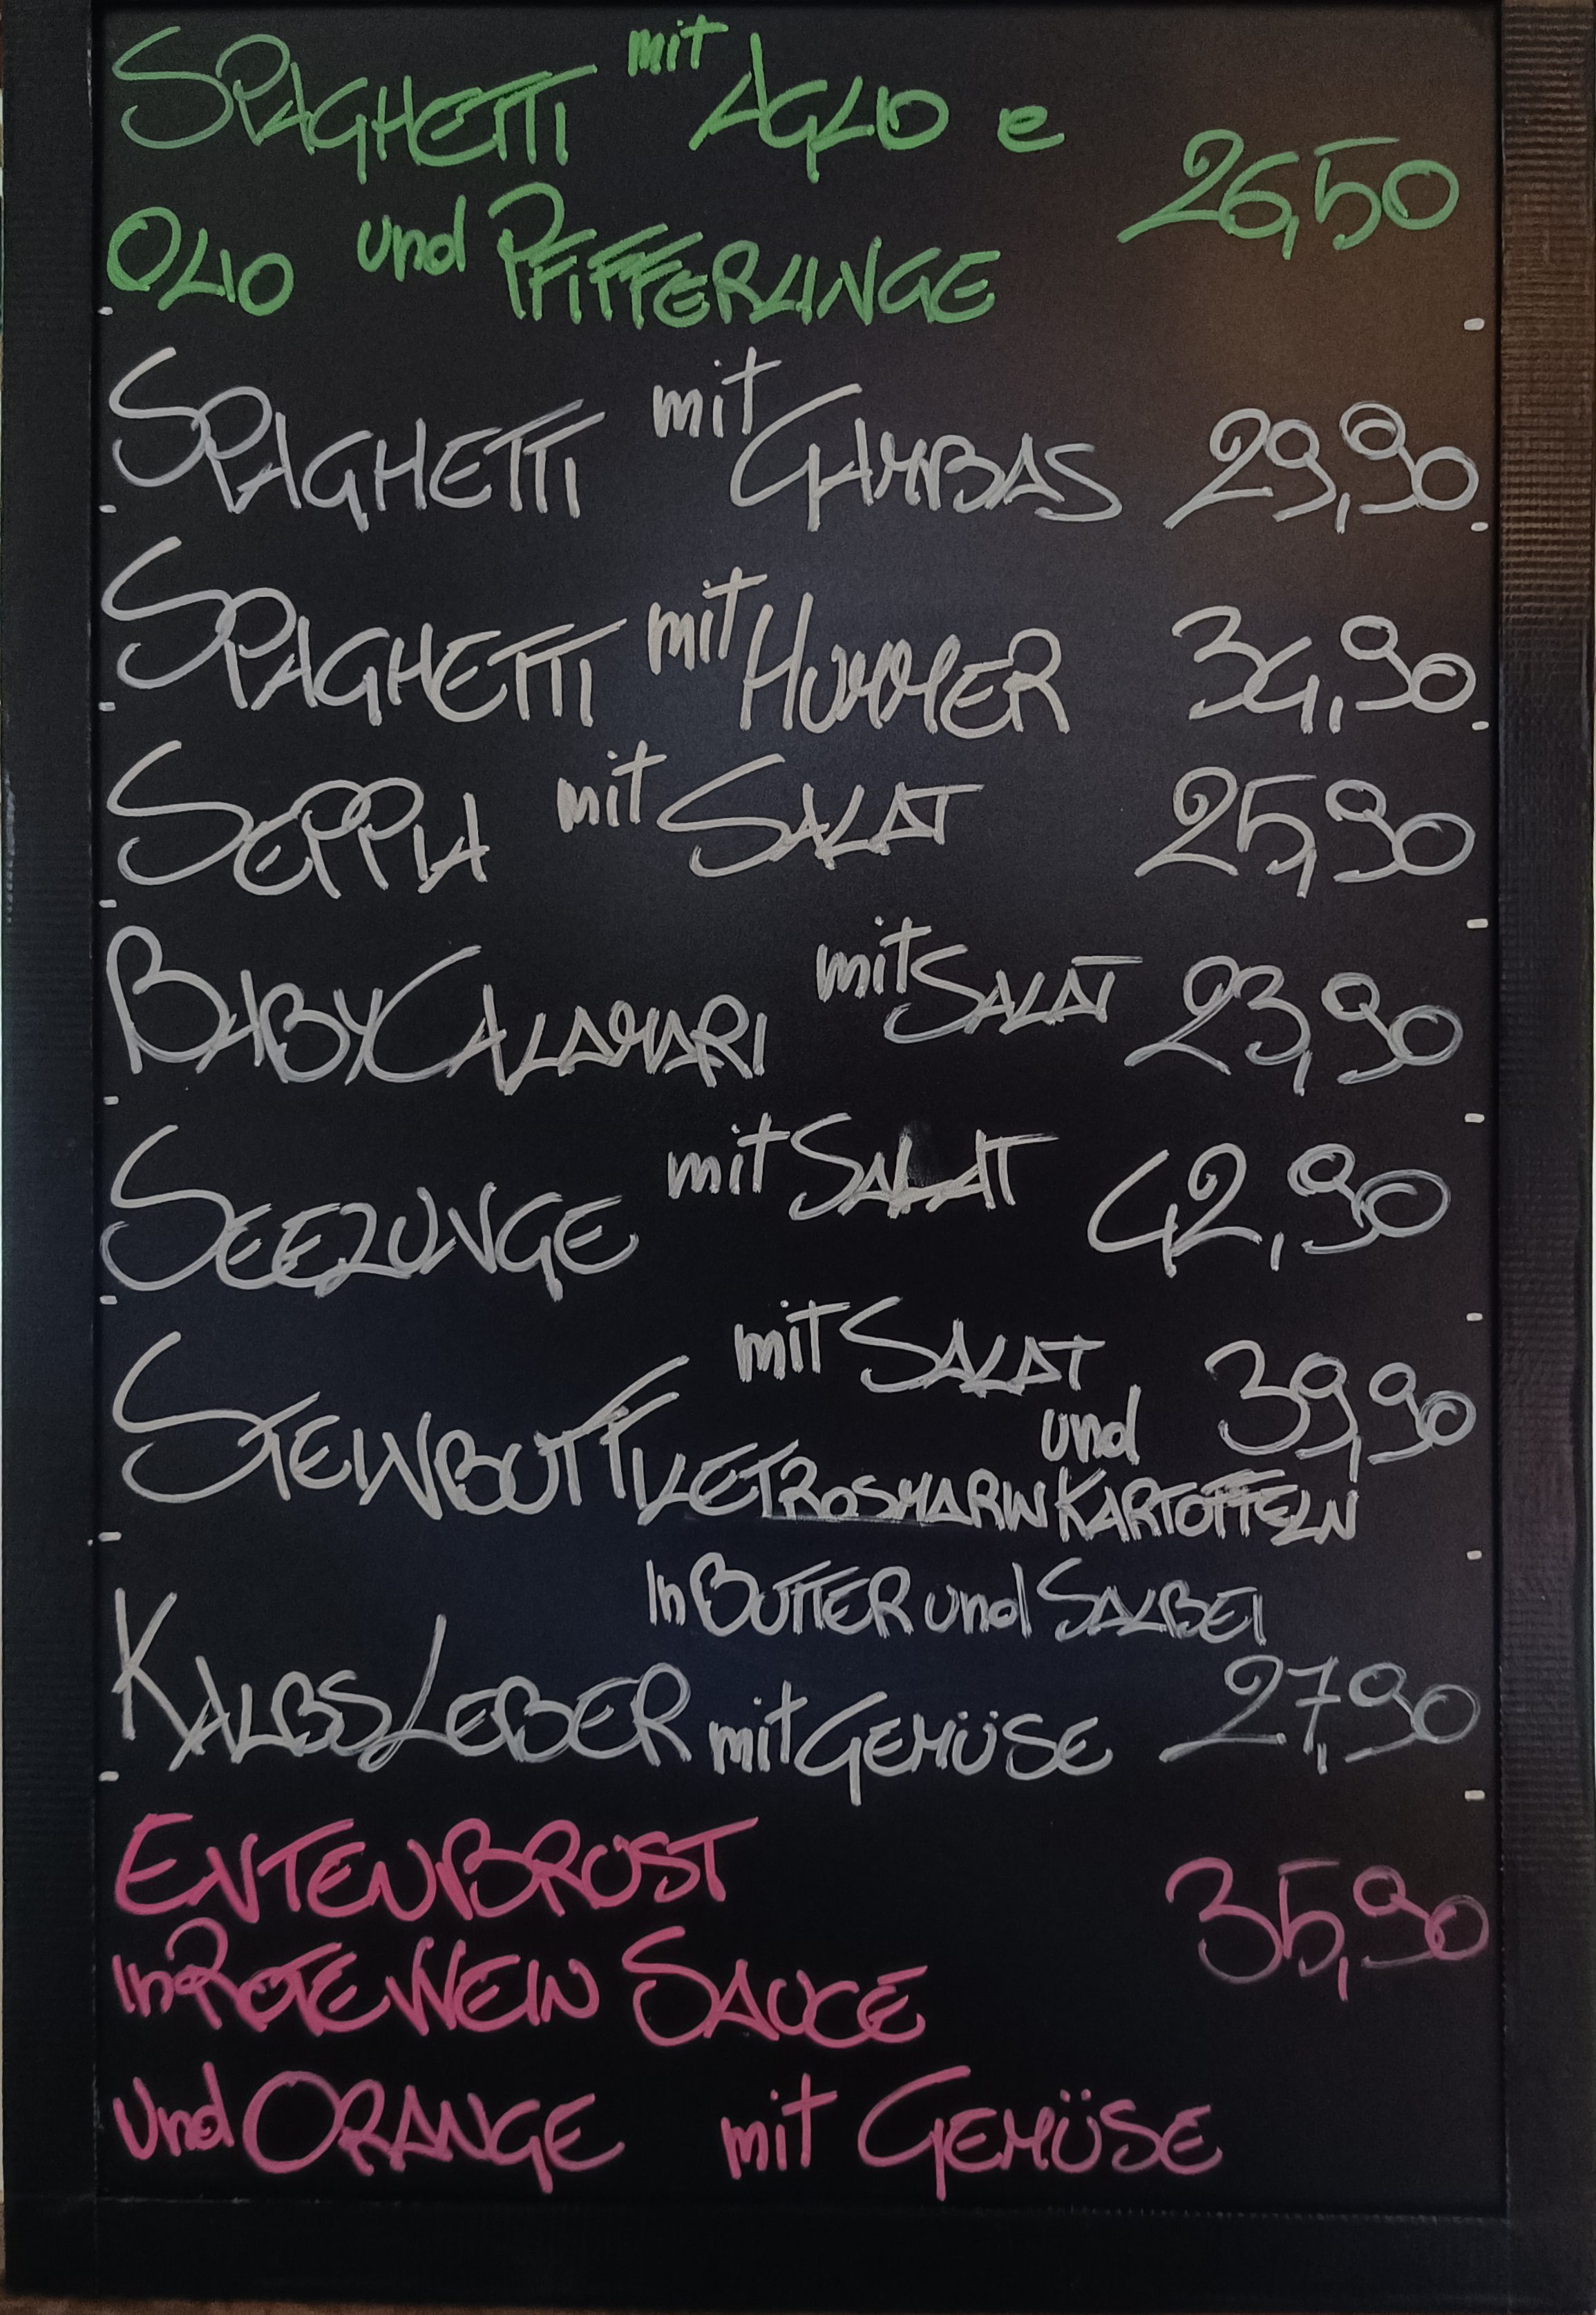 SPAGHETTI mit AGLIO e
OLIO und PFIFFERLINGE 26,50
SPAGHETTI mit GAMBAS 29,90
SPAGHETTI mit HUMMER 34,90
SEPPIA mit SALAT 25,90
BABY CALAMARI mit SALAT 23,90
SEEZUNGE mit SALAT 42,90
STEINBUTT FILET mit SALAT 39,90
und
ROSMARIN KARTOFFELN
In BUTTER und SALBEI
KALBSLEBER mit GEMÜSE 27,90
ENTENBRUST
In ROTEWEIN SAUCE 35,90
und ORANGE mit GEMÜSE